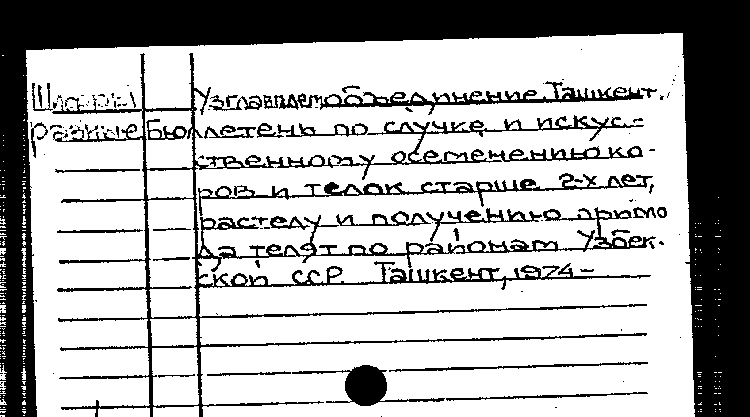 Шифры Узглавплемобъединение. Ташкент.
разные Бюллетень по случке и искус-
ственному осеменению ко-
ров и телок старше 2-х лет,
растелу и получению припло
да телят по районам Узбек.
ской ССР. Ташкент, 1974-